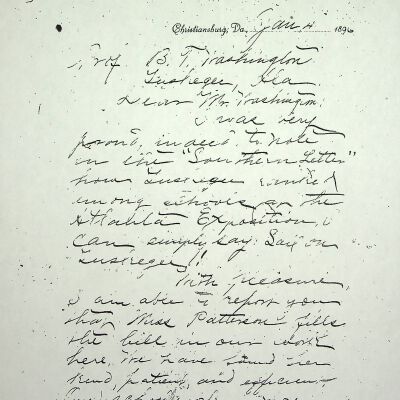 Christiansburg, Va. Jan 4 1896
Prof. B. T. Washington
Tuskegee, Ala.
Dear Mr. Washington:
I was very
proud, indeed, to note
in the "Southern Letter"
how Tuskegee ranked
among schools at the
Atlanta Exposition, I
can simply say: Sail on
Tuskegee!!
With pleasure,
I am able to report you
that Miss Patterson fills
the bill in our work
here. We have found her
kind, patient, and efficient.
Our school